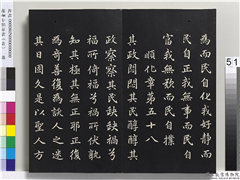 為而民自化我好靜而
民自正我無事而民自
富我無欲而民自樸
順化章第五十八
其政悶悶其民醇醇其
政察察其民缺缺禍兮
福所倚福兮禍所伏孰
知其極其無正耶正復
為奇善復為訞人之迷
其日固久是以聖人方
51